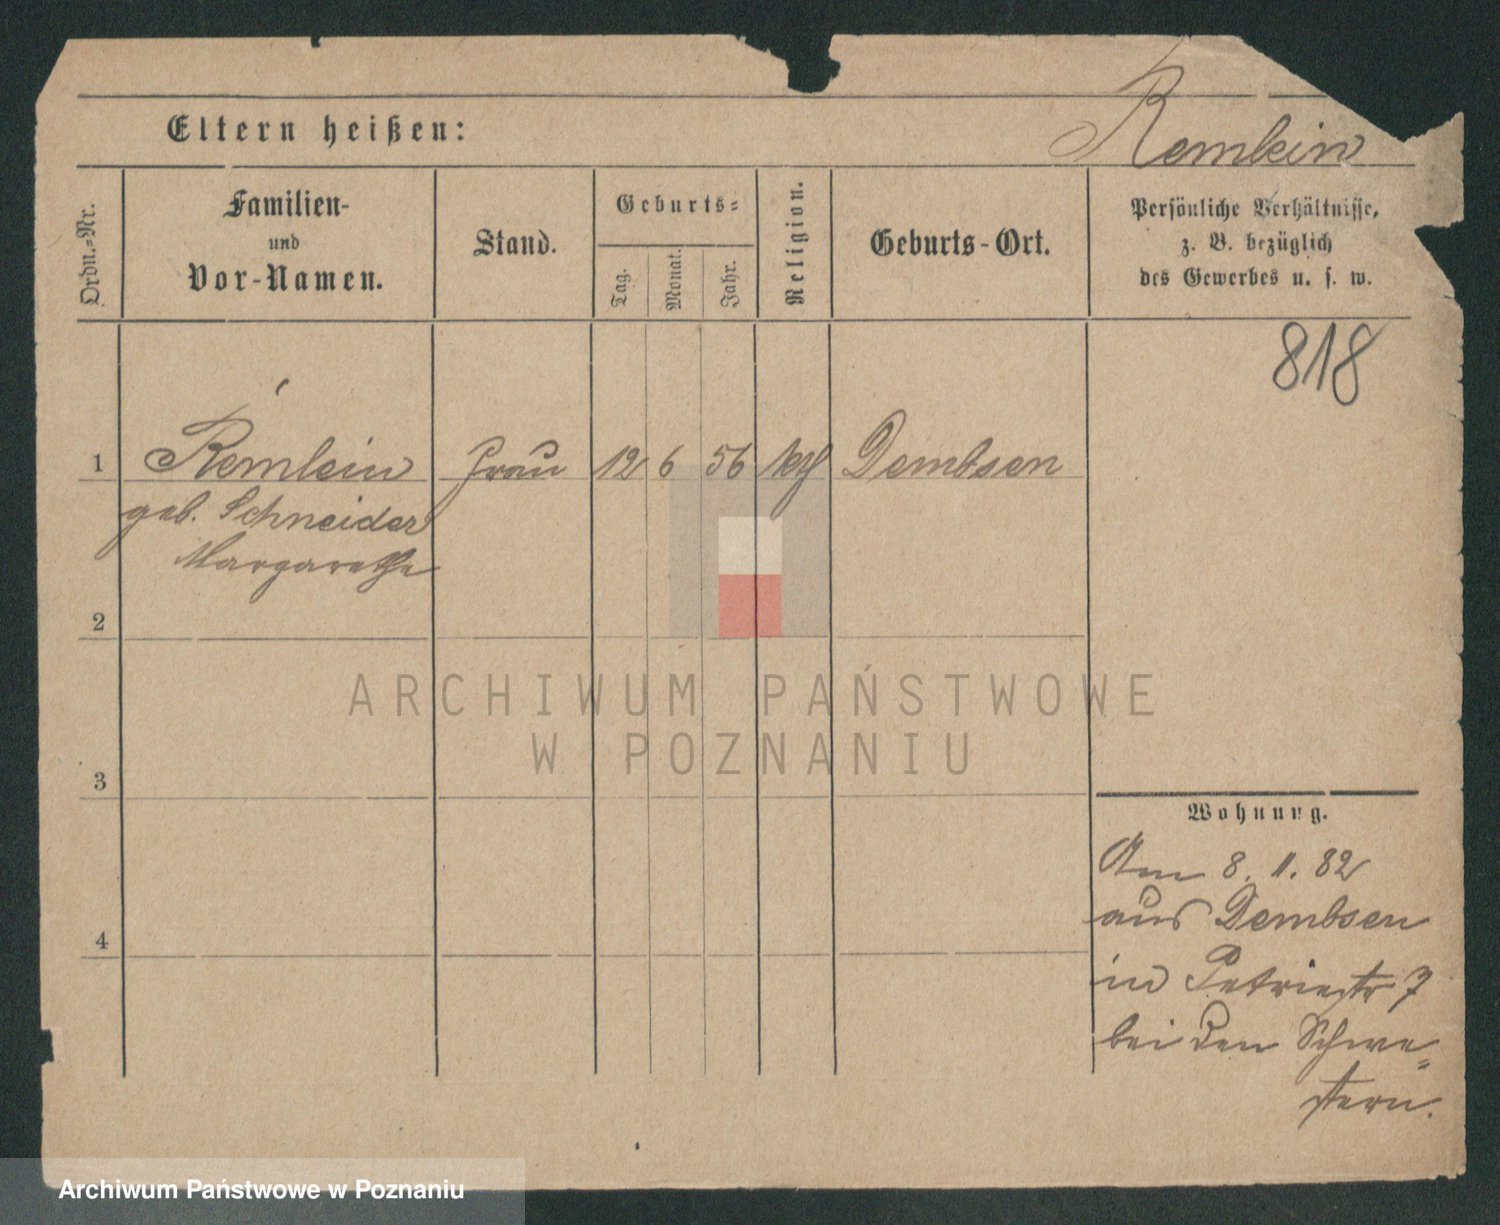 Eltern heißen:
Remlein
Ordn.-Nr.
Familien-
und
Vor-Namen.
Stand.
Geburts-
Tag.
Monat.
Jahr.
Religion.
Geburts-Ort.
Persönliche Verhältnisse,
z. B. bezüglich
des Gewerbes u. s. w.
818
1 Remlein Frau 12 6 56 kth Dembsen
geb. Schneider
Margarethe
2
3
4
ARCHIWUM PAŃSTWOWE
W POZNANIU
Wohnung.
Am 8. 11. 82
aus Dembsen
in Petristr 7
bei den Schwe-
stern.
Archiwum Państwowe w Poznaniu